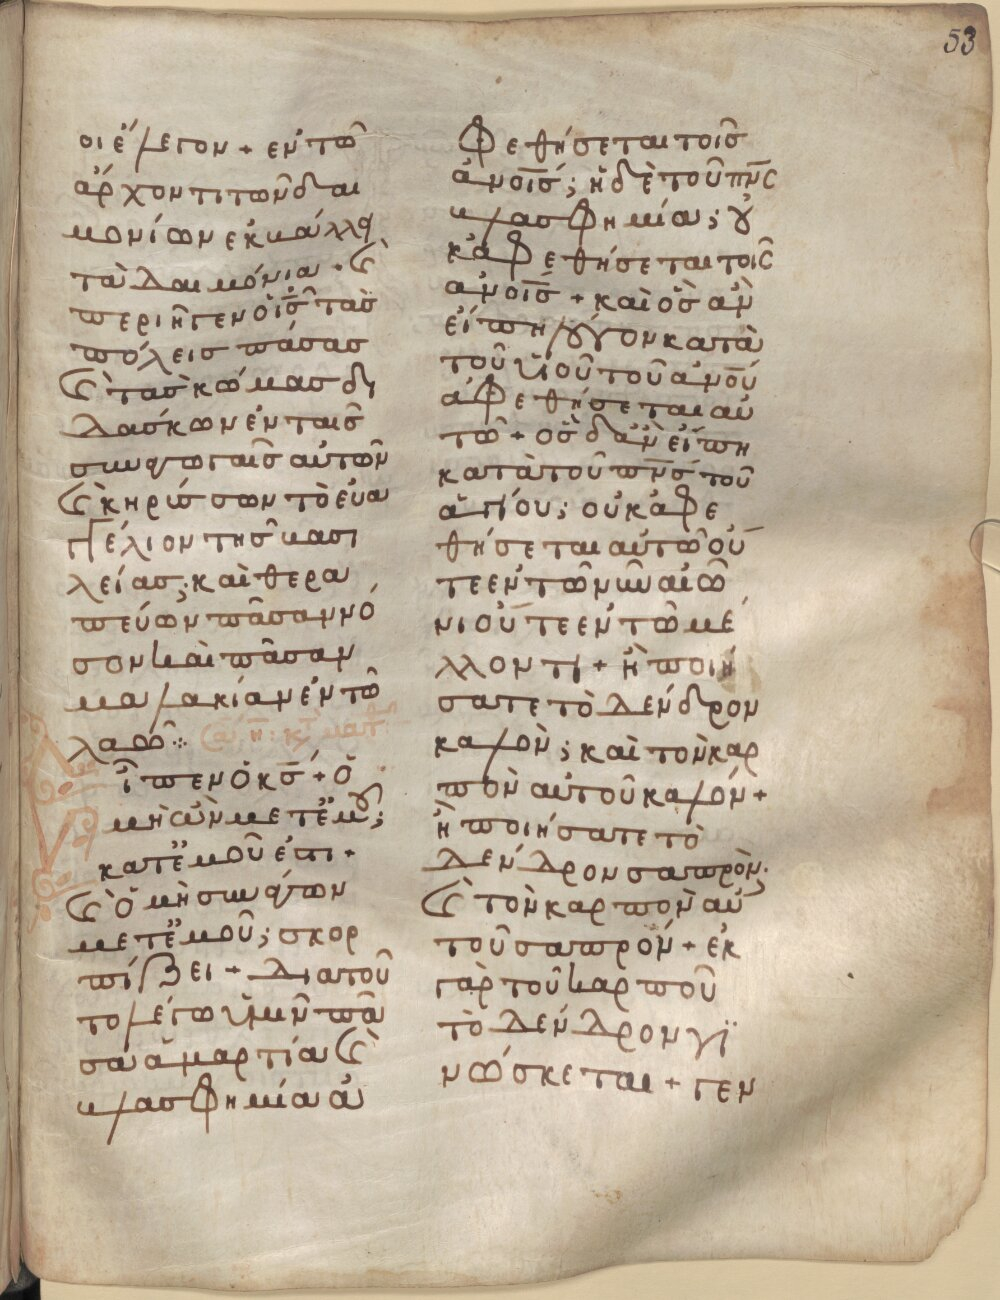 53
οι ἔλεγον + ἐν τῶ
ἄρχοντι τῶν δαι
μονίων ἐκβάλλη
τὰ δαιμόνια + ϗ
περιῆγεν ὁ ις̅ τὰς
πόλεις πάσας
ϗ τὰς κώμας δι
δάσκων ἐν ταῖς
συναγωγαῖς αὐτῶν
ϗ κηρύσσων τὸ εὐα
γγέλιον τῆς βασι
λείας; καὶ θερα
πεύων πᾶσαν νό
σον και πᾶσαν
μαλακίαν ἐν τῶ
λαῶ ⁘
εἶπεν ὁ κς̅ + ὁ
μὴ ὢν μετ ἐμοῦ;
κατ ἐμοῦ ἐστι +
ϗ ὁ μὴ συνάγων
μετ ἐμοῦ; σκορ
πίζει + διατοῦ
το λέγω ὑμῖν πᾶ
σα ἁμαρτία ϗ
βλασφημία ἀ
φεθήσεται τοῖς
ἀνοις̅; ἡ δὲ τοῦ πνς̅
βλασφημία; οὐ
κ ἀφεθήσεται τοῖς
ἀνοις̅ + καὶ ὃς ἂν
εἴπη λόγον κατὰ
τοῦ υἱοῦ τοῦ ἀνου̅
ἀφεθήσεται αὐ
τῶ + ὃς δ ἂν εἴπη
κατὰ τοῦ πνς̅ τοῦ
ἁγίου; οὐκ ἀφε
θήσεται αὐτῶ οὔ
τε ἐν τῶ νῦν αἰῶ
νι οὔτε ἐν τῶ μέ
λλοντι + ἢ ποιή
σατε τὸ δένδρον
καλὸν; καὶ τὸν καρ
πὸν αὐτοῦ καλόν +
ἢ ποιήσατε τὸ
δένδρον σαπρὸν·
ϗ τὸν καρπὸν αὐ
τοῦ σαπρὸν + ἐκ
γὰρ τοῦ καρποῦ
τὸ δένδρον γϊ
νώσκεται + γεν